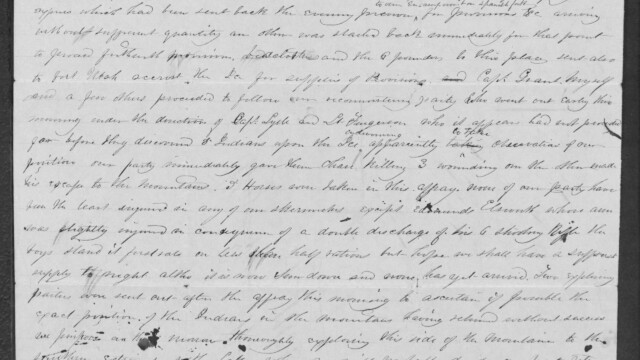 to our encampment on Spanish fork
express which had been sent back the evening for provisions &c arriving
without sufficient quantity an other was started back immediately for that point
to forward further provision, and the 6 pounders to this place, sent also
to fort Utah across the Ice for supplies of Provisions and Capt Grant myself
and a few others proceeded to follow our reconnoitering party who went out early this
morning under the direction of Capt Lytle and Lt Ferguson who it appears had not proceeded
far before they discovered 5 Indians upon the Ice, apparently to take observation of our
position our party immediately gave them chase killing 3 wounding one the other made
his escape to the mountains. 7 Horses were taken in this affray none of our party have
been the least injured in any of our skirmishes except Edmunds Elsworth whose arm
was slightly injured in consequence of a double discharge of his 6 shooting Rifle the
boys stand it firstrate on less than half rations but hope we shall have a sufficient
supply to night altho it is now Sun down and none has yet arrived. Two exploring
parties were sent out after the affray this morning to ascertain if possible the
exact position of the Indians in the mountains having returned without success
we purpose on the morrow thoroughly exploring this side of the mountains to the
southern